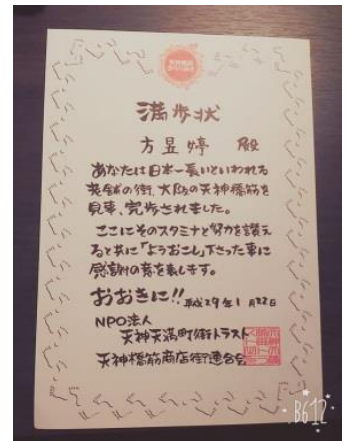 満歩状
方昱婷 殿
あなたは日本一長いといわれる
老舗の街、大阪の天神橋筋を
見事、完歩されました。
ここにそのスタミナと努力を讃え
ると共に「ようおこし」下さった事に
感謝の意を表します。
おおきに!! 平成29年1月22日
NPO法人
天神天満町街トラスト
天神橋筋商店街連合会
B612